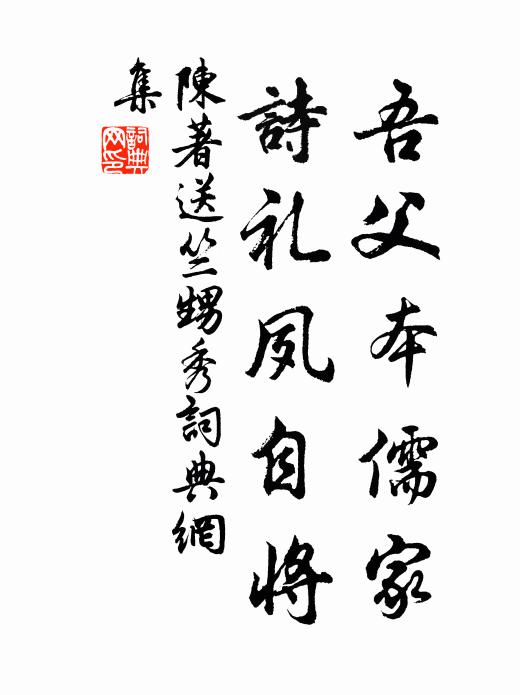 吾父本儒家
詩礼夙自將
陳著送竺甥秀詞典網
集
詞典網印